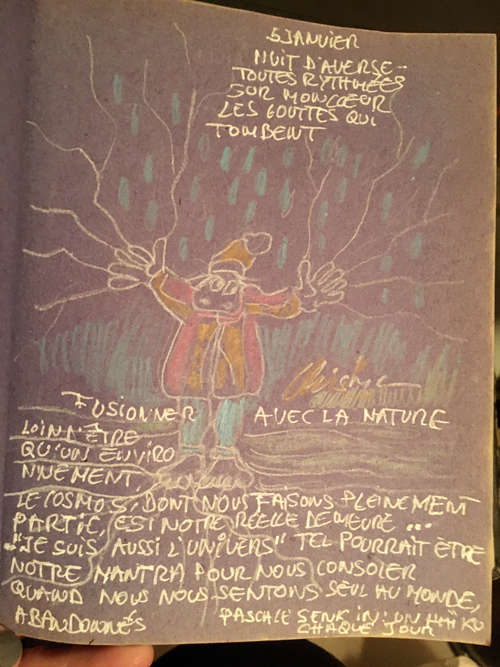 5 JANVIER
NUIT D'AVERSE -
TOUTES RYTHMÉES
SUR MON CŒUR
LES GOUTTES QUI
TOMBENT
FUSIONNER AVEC LA NATURE
LOIN N'ÊTRE
QU'UN ENVIRO
NNEMENT,
LE COSMOS, DONT NOUS FAISONS PLEINEMENT
PARTIE, EST NOTRE RÉELLE DEMEURE...
"JE SUIS AUSSI L'UNIVERS" TEL POURRAIT ÊTRE
NOTRE MANTRA POUR NOUS CONSOLER
QUAND NOUS NOUS SENTONS SEUL AU MONDE,
ABANDONNÉS
PASCALE SENK IN: UN HAÏKU
CHAQUE JOUR